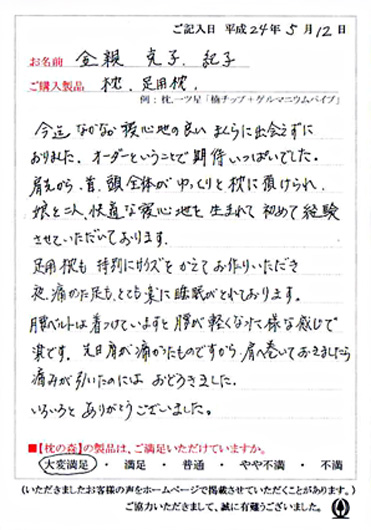 ご記入日 平成24年5月12日
お名前 金親 克子、紀子
ご購入製品 枕、足用枕、
例：枕.一ツ星「楠チップ+ゲルマニウムパイプ」
今迄 なかなか 寝心地の良い まくらに出会えずに
おりました。オーダーということで期待いっぱいでした。
肩先から、首、頭全体がゆっくりと枕に預けられ、
娘と二人、快適な寝心地を 生まれて 初めて経験
させていただいております。
足用枕も 特別にサイズを かえてお作りいただき
夜、痛かった足も、とても楽に睡眠がとれております。
腰ベルトは着つけていますと 腰が軽くなった様な感じで
楽です。先日肩が痛かったものですから、肩へ巻いておきましたら
痛みが引いたのには おどろきました。
いろいろと ありがとうございました。
■【枕の森】の製品は、ご満足いただけていますか。
大変満足 ・ 満足 ・ 普通 ・ やや不満 ・ 不満
(いただきましたお客様の声をホームページで掲載させていただくことがあります。)
ご協力いただきまして、誠に有難うございました。